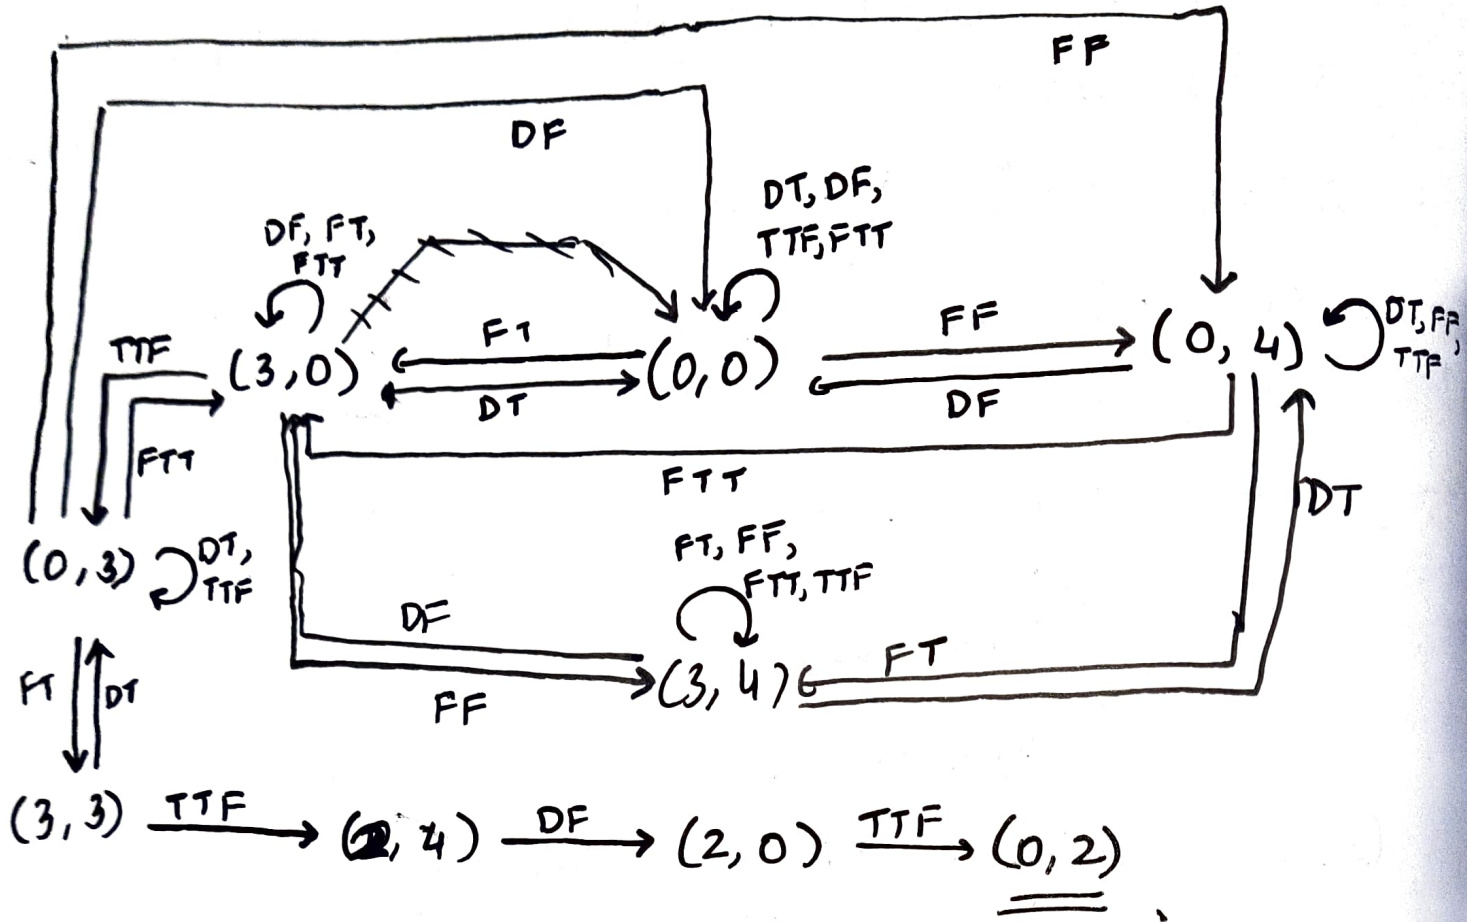 FF
DF
DT, DF,
TTF, FTT
DF, FT,
FTT
TTF
(3,0)
FT
DT
(0,0)
FF
DF
(0, 4)
DT, FF,
TTF
FTT
FTT
DT
(0,3)
DT,
TTF
FT, FF,
FTT, TTF
DF
FF
(3, 4)
FT
FT
DT
(3,3)
TTF
(2, 4)
DF
(2,0)
TTF
(0,2)